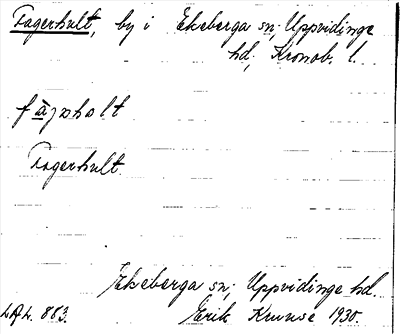 Fagerhult, by i Ekeberga sn, Uppvidinge
hd, Kronob. l.
fàgəholt
Fagerhult.
Ekeberga sn, Uppvidinge hd.
L.A.L. 883. Erik Kruuse 1930.